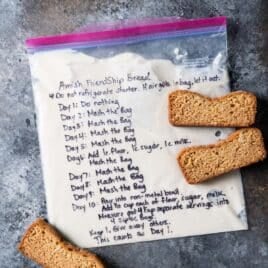 Amish Friendship Bread
* Do not refrigerate starter. If air gets in bag, let it out.
Day 1: Do nothing
Day 2: Mash the Bag
Day 3: Mash the Bag
Day 4: Mash the Bag
Day 5: Mash the Bag
Day 6: Add 1c flour, 1c sugar, 1c milk.
Mash the Bag
Day 7: Mash the Bag
Day 8: Mash the Bag
Day 9: Mash the Bag
Day 10: Pour into non-metal bowl.
Add 1c each of flour, sugar, milk.
Measure out 4 separate servings into
4 Ziploc Bags.
Keep 1, Give away others.
This counts as Day 1.